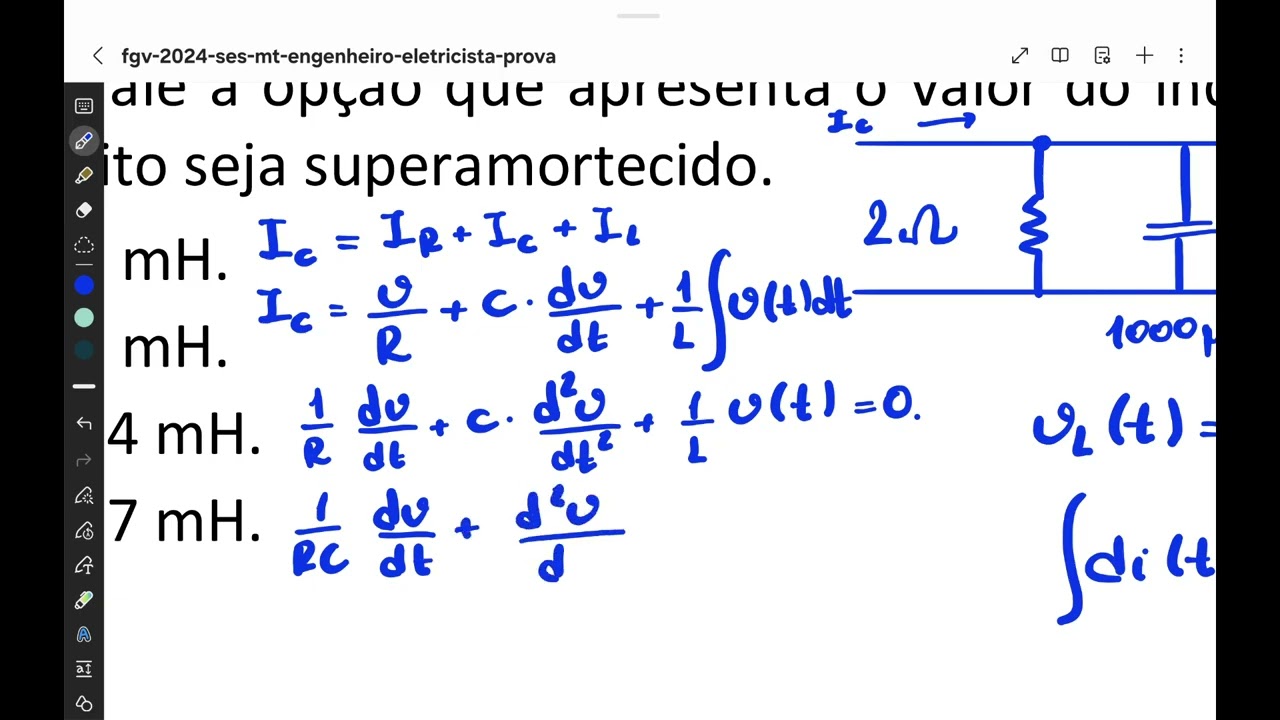 fgv-2024-ses-mt-engenheiro-eletricista-prova
ale a opção que apresenta o valor do ind
ito seja superamortecido.
mH.
mH.
4 mH.
7 mH.
I_c = I_R + I_c + I_L
I_c = v/R + C · dv/dt + 1/L ∫ v(t)dt
1/R dv/dt + C · d²v/dt² + 1/L v(t) = 0.
1/RC dv/dt + d²v/d
I_c →
2Ω
1000μ
v_L(t) =
∫ di(t